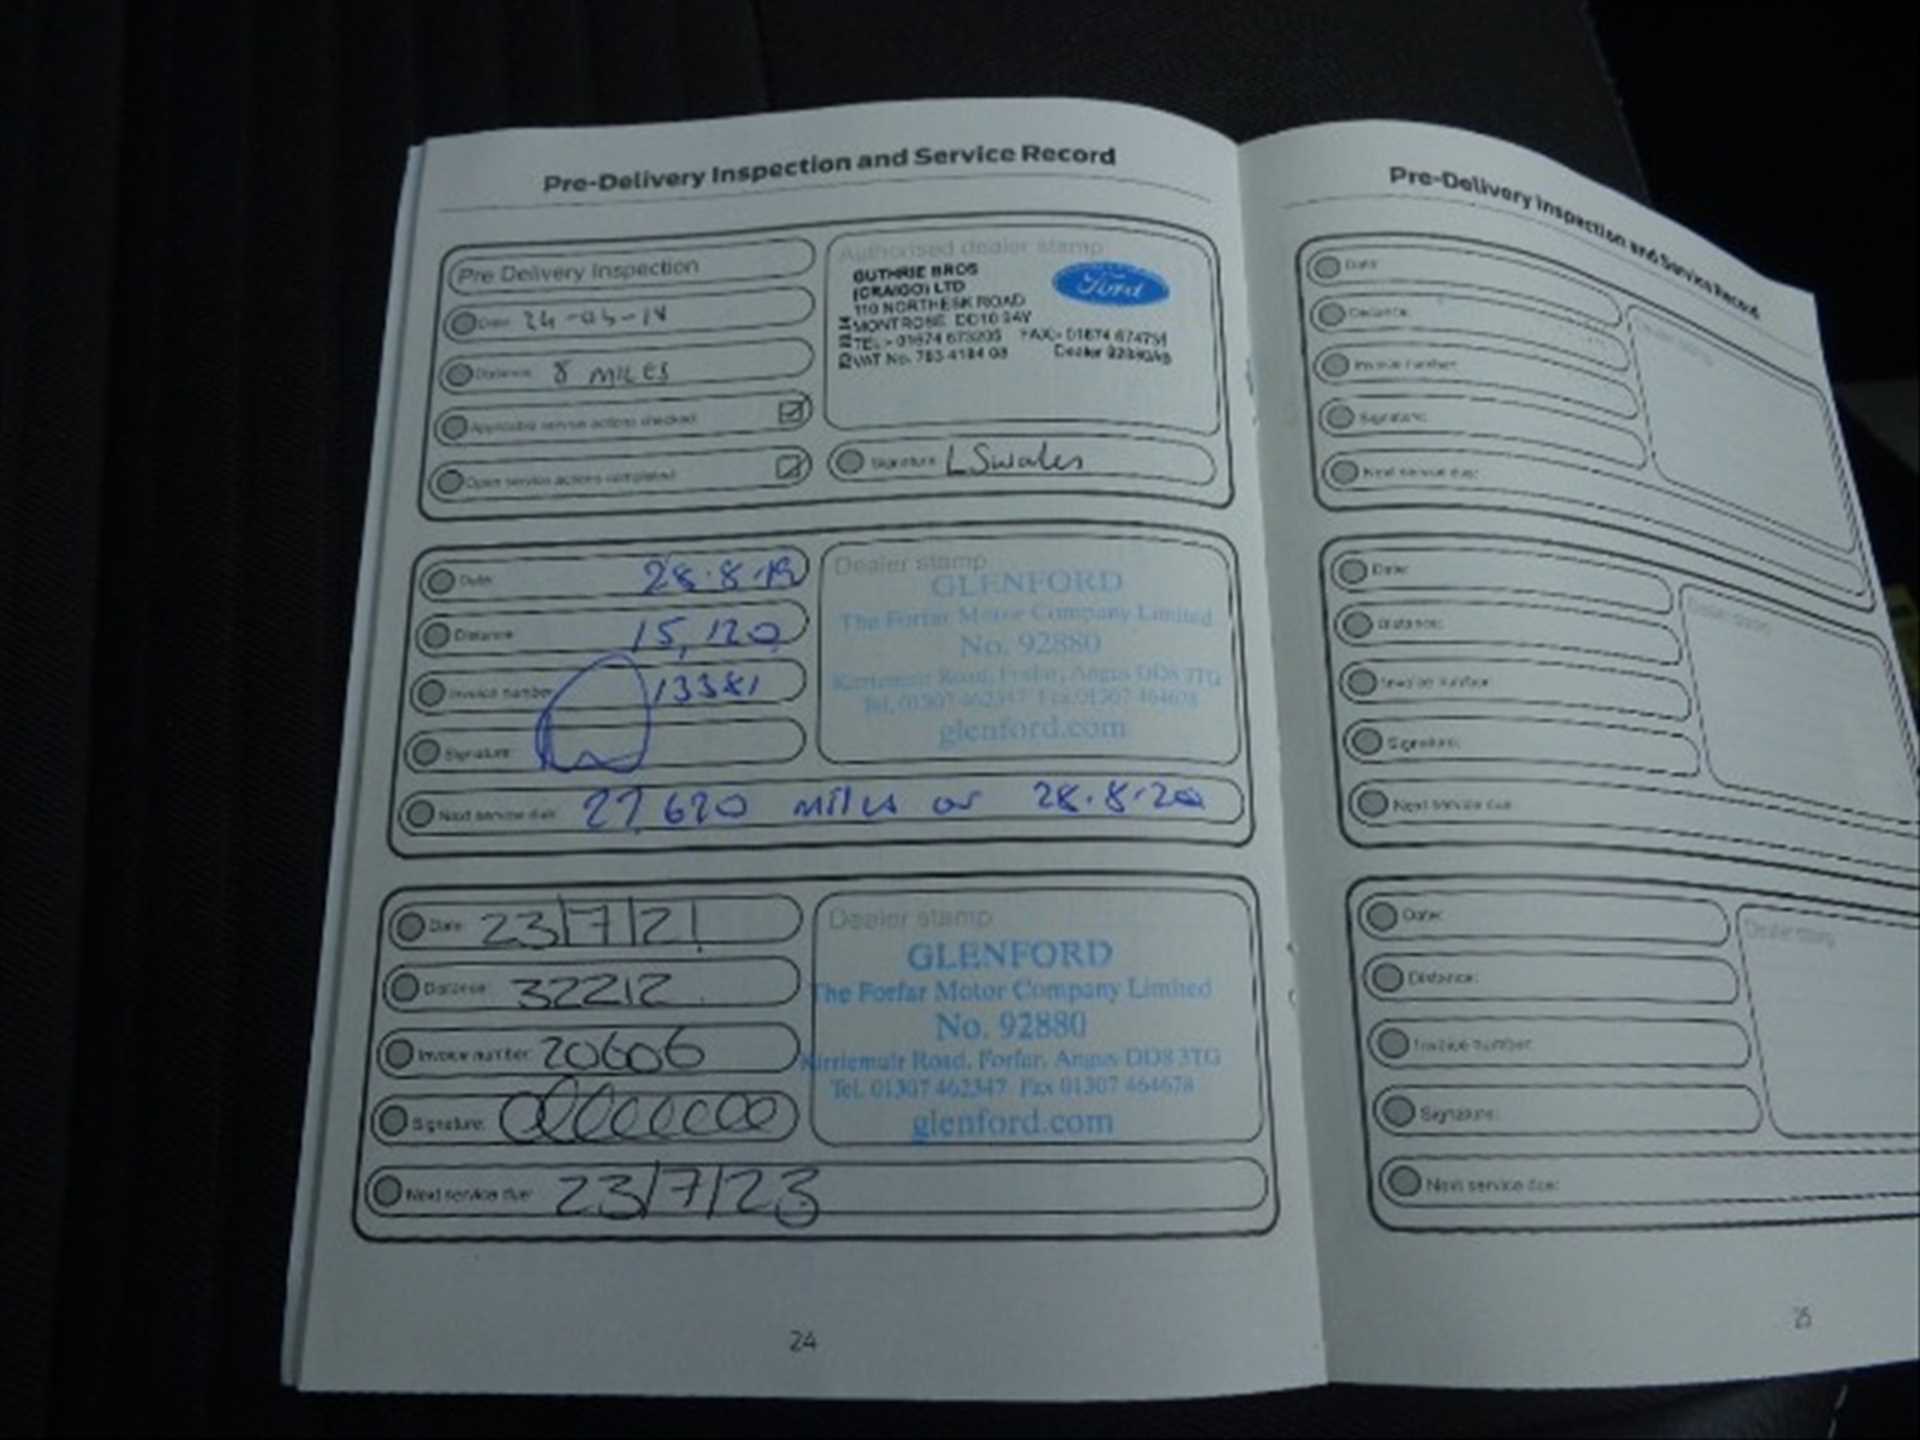 Pre-Delivery Inspection and Service Record
Pre Delivery Inspection
Date:
Distance: 8 MILES
Applicable service actions checked
Open service actions completed
Authorised dealer stamp
GUTHRIE BROS
(CRAIGO) LTD
110 NORTHESK ROAD
MONTROSE DD10
TEL:- 01674 673205 FAX:- 01674 674751
VAT No. 783 4184 08 Dealer
Ford
Signature: L Swales
Date: 28.8.19
Distance: 15,120
Invoice number: 13381
Signature:
Next service due: 27,620 miles or 28.8.20
Dealer stamp
GLENFORD
The Forfar Motor Company Limited
No. 92880
Kirriemuir Road, Forfar, Angus DD8 3TG
Tel. 01307 462347 Fax 01307 464678
glenford.com
Date: 23/7/21
Distance: 32212
Invoice number: 20606
Signature:
Next service due: 23/7/23
Dealer stamp
GLENFORD
The Forfar Motor Company Limited
No. 92880
Kirriemuir Road, Forfar, Angus DD8 3TG
Tel. 01307 462347 Fax 01307 464678
glenford.com
24
Pre-Delivery Inspection and Service Record
Date:
Distance:
Invoice number:
Signature:
Next service due:
Dealer stamp
Date:
Distance:
Invoice number:
Signature:
Next service due:
Dealer stamp
Date:
Distance:
Invoice number:
Signature:
Next service due:
Dealer stamp
25